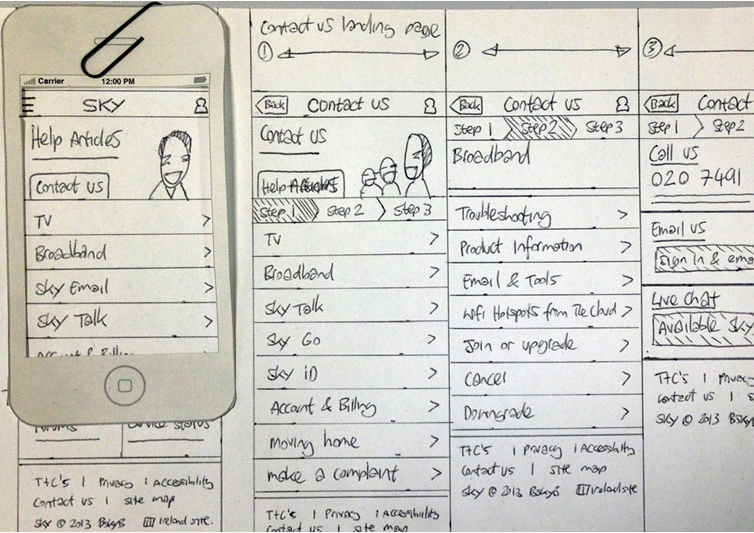 Carrier 12:00 PM
SKY
Help Articles
Contact us
TV
Broadband
Sky Email
Sky Talk
Account & Billing
Forums
Device status
T+C's | Privacy | Accessibility
Contact us | site map
Sky © 2013 BskyB Ireland site.
Contact us landing page
1
Back Contact us
Contact us
Help Articles
Step 1 Step 2 Step 3
TV
Broadband
Sky Talk
Sky Go
Sky iD
Account & Billing
moving home
make a complaint
T+C's | Privacy | Accessibility
Contact us | site map
2
Back Contact us
Step 1 Step 2 Step 3
Broadband
Troubleshooting
Product Information
Email & Tools
Wifi Hotspots from The Cloud
Join or upgrade
Cancel
Downgrade
T+C's | Privacy | Accessibility
Contact us | site map
Sky © 2013 BskyB Ireland site
3
Back Contact
Step 1 Step 2
Call us
020 7491
Email us
Sign in & ema
Live chat
Available Sky
T+C's | Privac
Contact us | s
Sky © 2013 Bsky